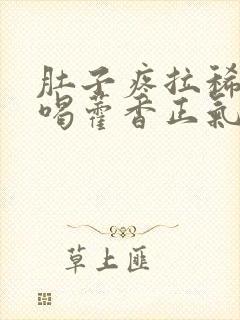 肚子疼拉稀
喝藿香正氣
草上匪